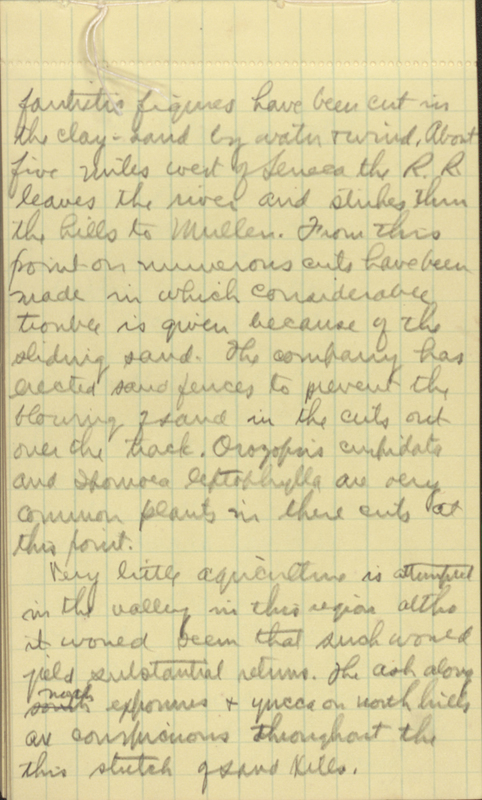 fantistic figures have been cut in
the clay-sand by water & wind. About
five miles west of Seneca the R. R.
leaves the river and strikes thru
the hills to Mullen. From this
point on numerous cuts have been
made in which considerable
trouble is given because of the
sliding sand. The company has
erected sand fences to prevent the
blowing of sand in the cuts out
over the track. Orozopsis cuspidata
and Ipomoea leptophylla are very
common plants in these cuts at
this point.
Very little agriculture is attempted
in the valley in this region altho
it would seem that such would
yield substantial returns. The ash along
north
south exposures & yucca on north hills
are conspicuous throughout the
this stretch of sand hills.